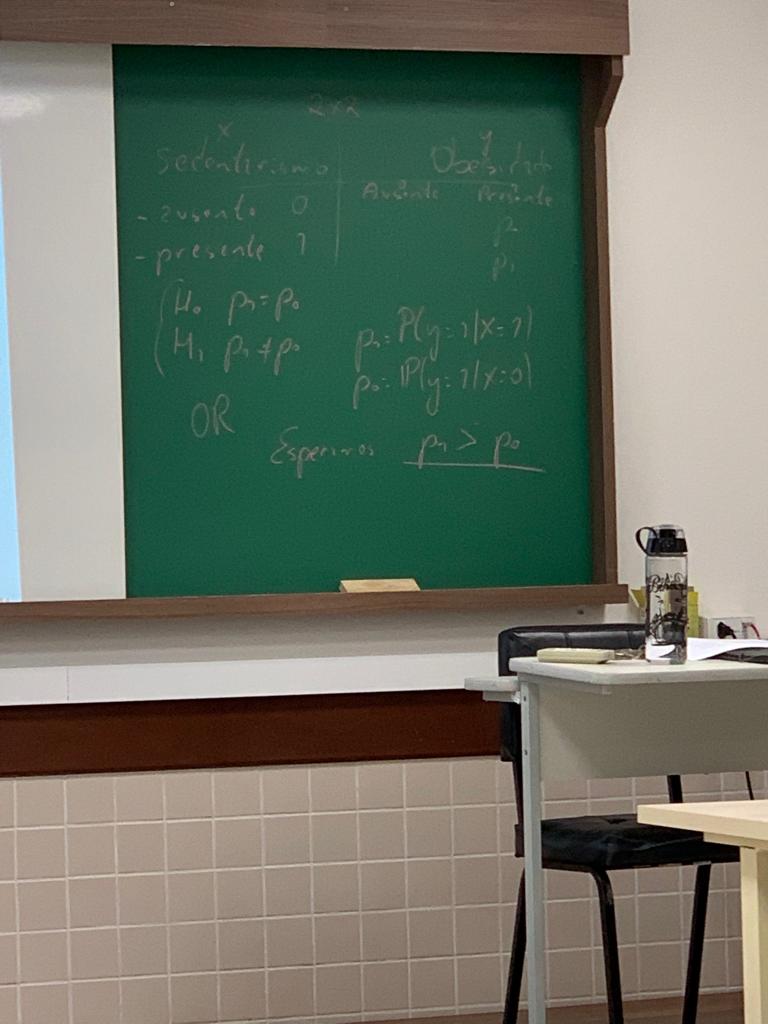 2x2
x y
Sedentarismo Obesidade
Ausente Presente
- ausente 0 p
- presente 1 p1
H0 p1 = p0
H1 p1 ≠ p0
p1 = P(y=1|x=1)
p0 = P(y=1|x=0)
OR
Esperamos p1 > p0